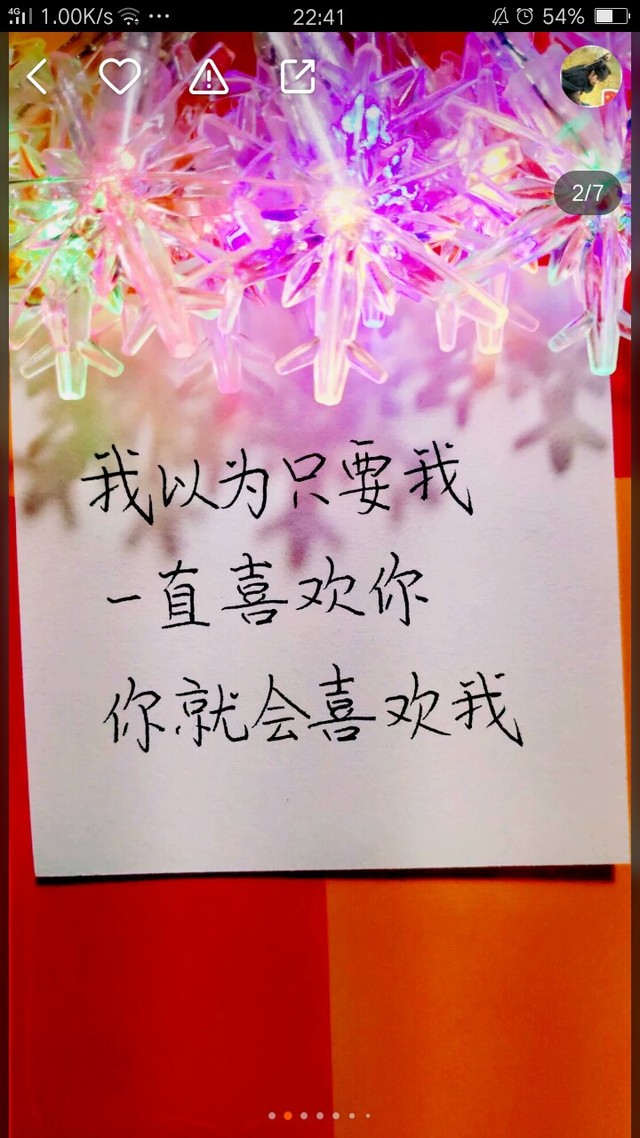 4G 1.00K/s 22:41 54%
2/7
我以为只要我
一直喜欢你
你就会喜欢我